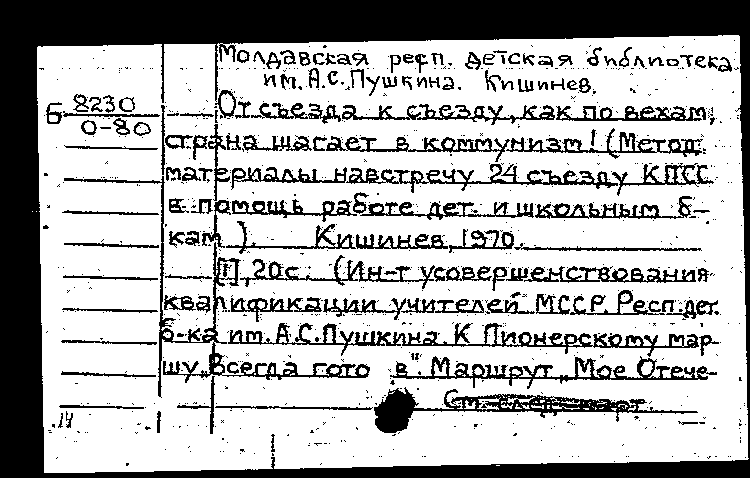 Молдавская респ. детская библиотека
им. А.С. Пушкина. Кишинев.
Б 8230
0-80
От съезда к съезду, как по вехам,
страна шагает в коммунизм! (Метод.
материалы навстречу 24 съезду КПСС
в помощь работе дет. и школьным б-
кам). Кишинев, 1970.
[1], 20 с. (Ин-т усовершенствования
квалификации учителей МССР. Респ. дет.
б-ка им. А.С. Пушкина. К Пионерскому мар-
шу „Всегда гото в". Маршрут „Мое Отече-
См. след. карт.